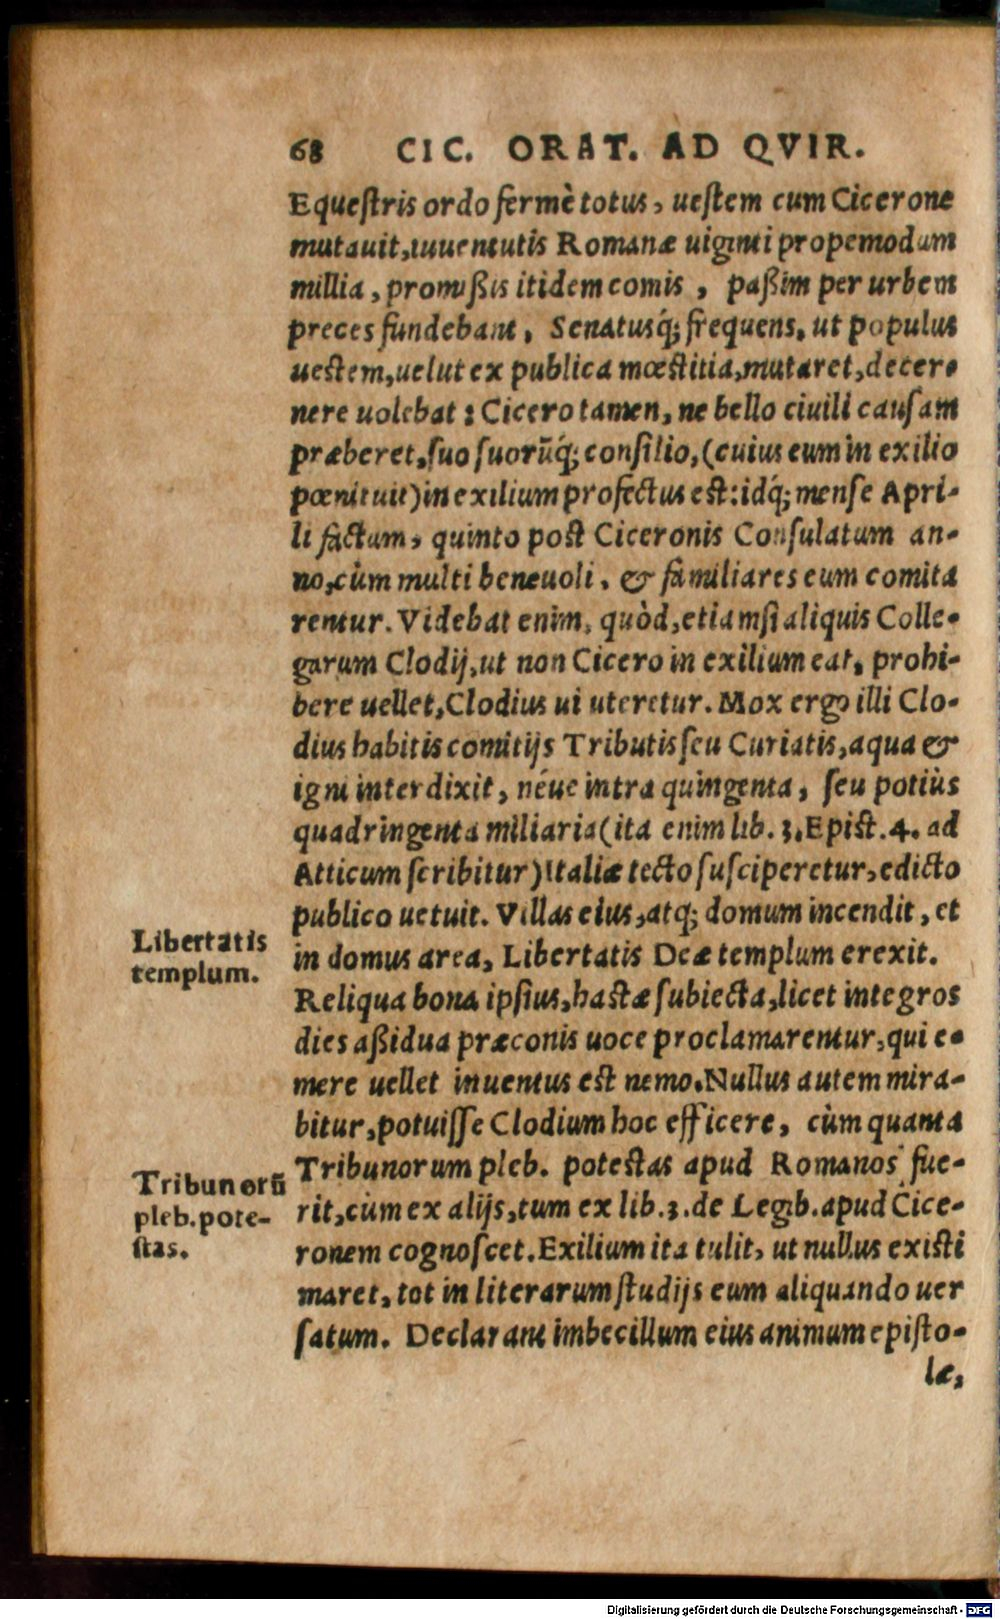 68 CIC. ORAT. AD QVIR.
Equeſtris ordo fermè totus, ueſtem cum Cicerone
mutauit, iuuentutis Romanæ uiginti propemodum
millia, promißis itidem comis, paßim per urbem
preces fundebant, Senatusq́; frequens, ut populus
uestem, uelut ex publica mœstitia, mutaret, decer-
nere uolebat: Cicero tamen, ne bello ciuili cauſam
præberet, ſuo ſuorũq́; conſilio, (cuius eum in exilio
pœnituit) in exilium profectus est: idq́; menſe Apri-
li factum, quinto post Ciceronis Conſulatum an-
no, cùm multi beneuoli, & familiares eum comita
rentur. Videbat enim, quòd, etiamſi aliquis Colle-
garum Clodij, ut non Cicero in exilium eat, prohi-
bere uellet, Clodius ui uteretur. Mox ergo illi Clo-
dius habitis comitijs Tributis ſeu Curiatis, aqua &
igni interdixit, néue intra quingenta, ſeu potiùs
quadringenta miliaria (ita enim lib. 3. Epist. 4. ad
Atticum ſcribitur) Italiæ tecto ſuſciperetur, edicto
publico uetuit. Villas eius, atq; domum incendit, et
Libertatis
templum.
in domus area, Libertatis Deæ templum erexit.
Reliqua bona ipſius, hastæ ſubiecta, licet integros
dies aßidua præconis uoce proclamarentur, qui e-
mere uellet inuentus est nemo. Nullus autem mira-
bitur, potuiſſe Clodium hoc efficere, cùm quanta
Tribunorũ
pleb. pote-
ſtas.
Tribunorum pleb. potestas apud Romanos fue-
rit, cùm ex alijs, tum ex lib. 3. de Legib. apud Cice-
ronem cognoſcet. Exilium ita tulit, ut nullus existi
maret, tot in literarum ſtudijs eum aliquando uer
ſatum. Declarant imbecillum eius animum epiſto-
læ,
Digitalisierung gefördert durch die Deutsche Forschungsgemeinschaft - DFG